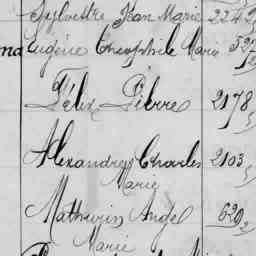 Sylvestre Jean Marie 2242
na Eugène Théophile Marie 327
Félix Pierre 2178
Alexandre Charles 2103
Marie
Mathurin Ange 620
Marie